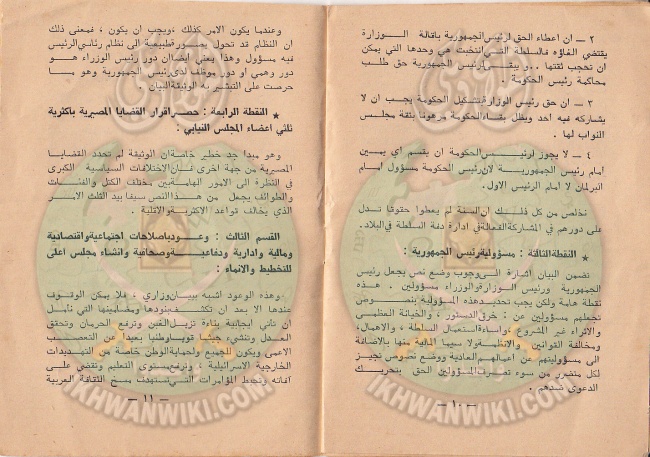 ٢ ـ ان اعطاء الحق لرئيس الجمهورية باقالة الوزارة
يقتضي الغاؤه فالسلطة التي انتخبت هي وحدها التي يمكن
ان تحجب ثقتها .. و يبقى لرئيس الجمهورية حق طلب
محاكمة رئيس الحكومة .
٣ ـ ان حق رئيس الوزارة بتشكيل الحكومة يجب ان لا
يشاركه فيه احد ويظل بقاء الحكومة مرهونا بثقة مجلس
النواب لها .
٤ ـ لا يجوز لرئيس الحكومة ان يقسم اي يمين
امام رئيس الجمهورية لان رئيس الحكومة مسؤول امام
البرلمان لا امام الرئيس الاول .
نخلص من كل ذلك ان السنة لم يعطوا حقوقا تدل
على دورهم في المشاركة الفعالة في ادارة دفة السلطة في البلاد .
★ النقطة الثالثة : مسؤولية رئيس الجمهورية :
تضمن البيان اشارة الى وجوب وضع نص يجعل رئيس
الجمهورية ورئيس الوزارة والوزراء مسؤولين . هذه
نقطة هامة ولكن يجب تحديد هذه المسؤولية بنصوص
تجعلهم مسؤولين عن : خرق الدستور ، والخيانة العظمى
والاثراء غير المشروع ، واساءة استعمال السلطة ، والاهمال،
ومخالفة القوانين والانظمة ولا سيما المالية منها بالاضافة
الى مسؤوليتهم عن اعمالهم العادية ووضع نصوص تجيز
لكل متضرر من سوء تصرفات المسؤولين الحق بتحريك
الدعوى ضدهم .
ـ ١٠ ـ
وعندما يكون الامر كذلك ،ويجب ان يكون ، فمعنى ذلك
ان النظام قد تحول بصورة طبيعية الى نظام رئاسي الرئيس
فيه مسؤول وهذا يعني ايضا ان دور رئيس الوزراء هو
دور وهمي او دور موظف لدى رئيس الجمهورية وهو ما
حرصت على التبشير به الوثيقة البيان .
★ النقطة الرابعة : حصر اقرار القضايا المصيرية باكثرية
ثلثي اعضاء المجلس النيابي :
وهو مبدا جد خطير خاصة ان الوثيقة لم تحدد القضايا
المصيرية من جهة اخرى فان الاختلافات السياسية الكبرى
في النظرة الى الامور الهامة بين مختلف الكتل والفئات
والطوائف يجعل من هذا النص سيفا بيد الثلث الامر
الذي يخالف قواعد الاكثرية والاقلية .
القسم الثالث : وعود باصلاحات اجتماعية واقتصادية
ومالية وادارية ودفاعية وصحافية وانشاء مجلس اعلى
للتخطيط والانماء :
وهذه الوعود اشبه ببيان وزاري ، فلا يمكن الوقوف
عندها الا بعد ان تكشف بنودها ومضامينها التي نامل
ان تاتي ايجابية بناءة تزيل الغبن وترفع الحرمان وتحقق
العدل وتنشيء جيشا قويا وطنيا بعيدا عن التعصب
الاعمى ويكون للجميع ولحماية الوطن خاصة من التهديدات
الخارجية الاسرائيلية ، وترفع مستوى التعليم وتقضي على
آفاته وتحبط المؤامرات التي تستهدف مسخ الثقافة العربية
ـ ١١ ـ
IKHWANWIKI.COM
IKHWANWIKI.COM